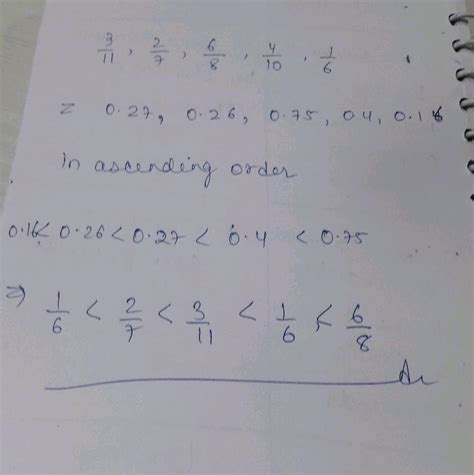 3/11, 2/7, 6/8, 4/10, 1/6
= 0.27, 0.26, 0.75, 0.4, 0.16
in ascending order
0.16 < 0.26 < 0.27 < 0.4 < 0.75
⇒ 1/6 < 2/7 < 3/11 < 1/6 < 6/8